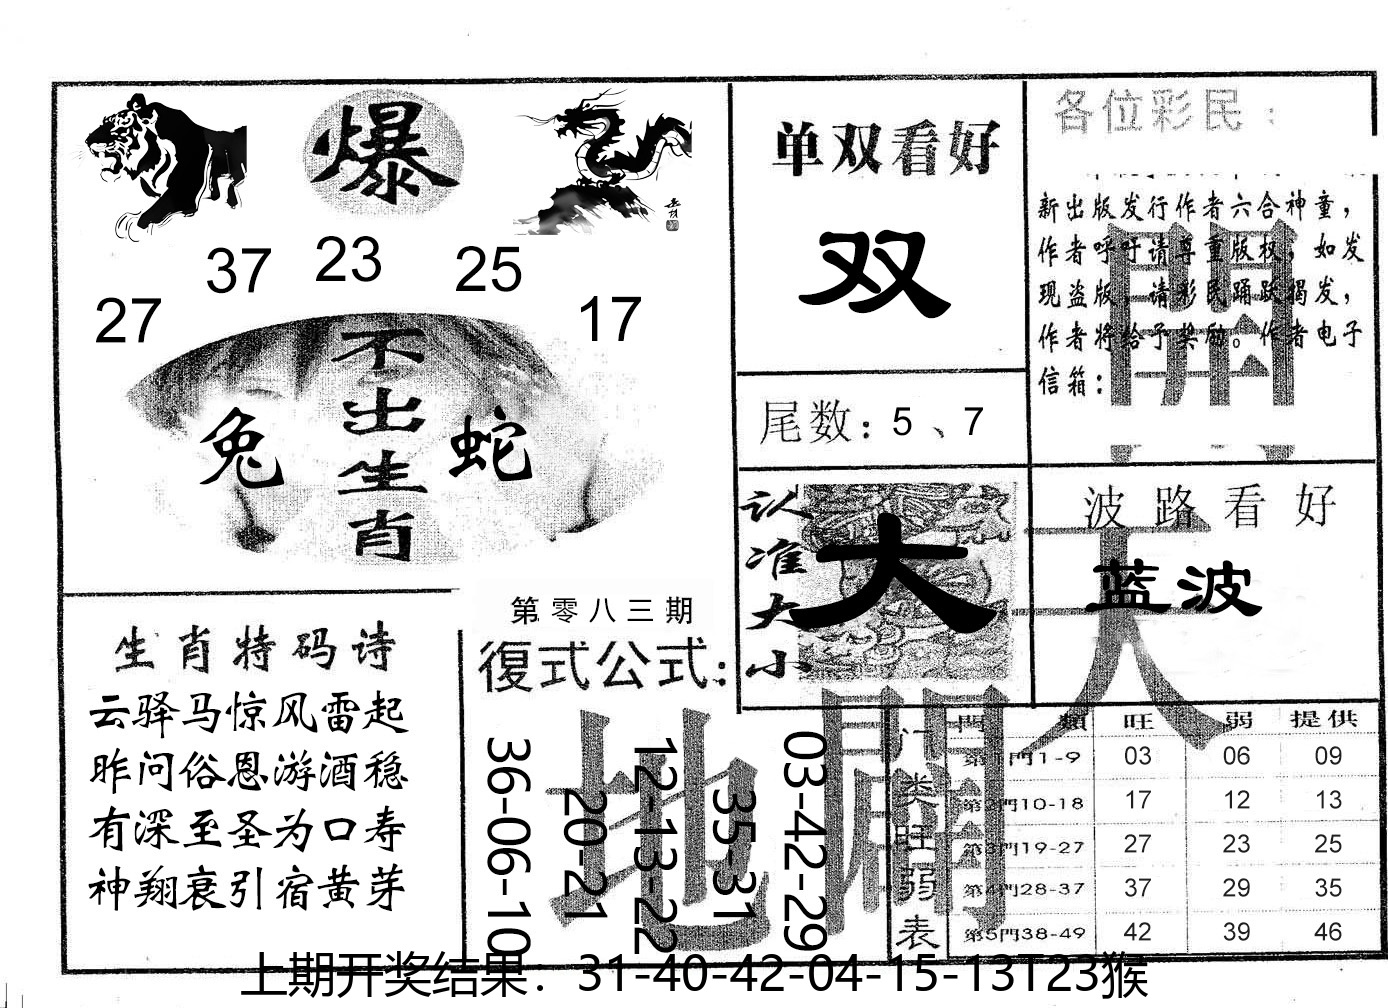 爆
37 23 25
27 17
不出生肖
兔 蛇
单双看好
双
尾数：5、7
各位彩民：
新出版发行作者六合神童，
作者呼吁请尊重版权，如发
现盗版，请彩民踊跃揭发，
作者将给予奖励。作者电子
信箱：
開
认准大小
大
波路看好
蓝波
天
生肖特码诗
云驿马惊风雷起
昨问俗恩游酒稳
有深至圣为口寿
神翔衰引宿黄芽
第零八三期
復式公式：
36-06-10
20-21
12-13-22
35-31
03-42-29
地
開
门类旺弱表
門類 旺 弱 提供
第1門1-9 03 06 09
第2門10-18 17 12 13
第3門19-27 27 23 25
第4門28-37 37 29 35
第5門38-49 42 39 46
上期开奖结果：31-40-42-04-15-13T23猴